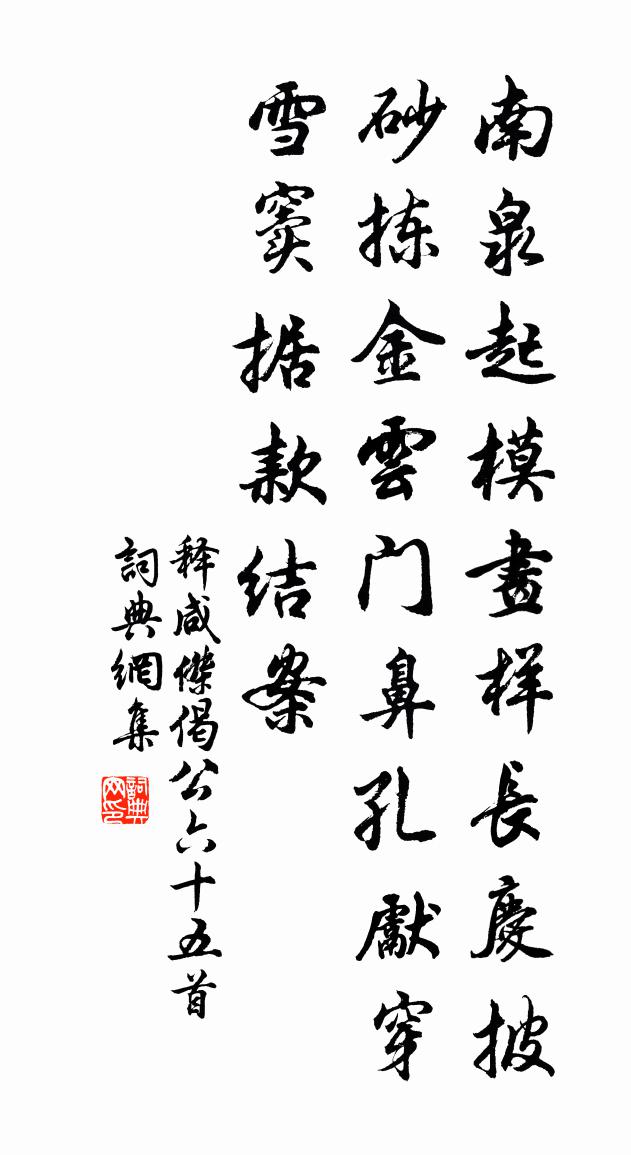 南泉起模畫样長慶披
砂拣金雲门鼻孔獻穿
雪窦据款结案
释咸傑偈公六十五首
詞典網集
詞典網印